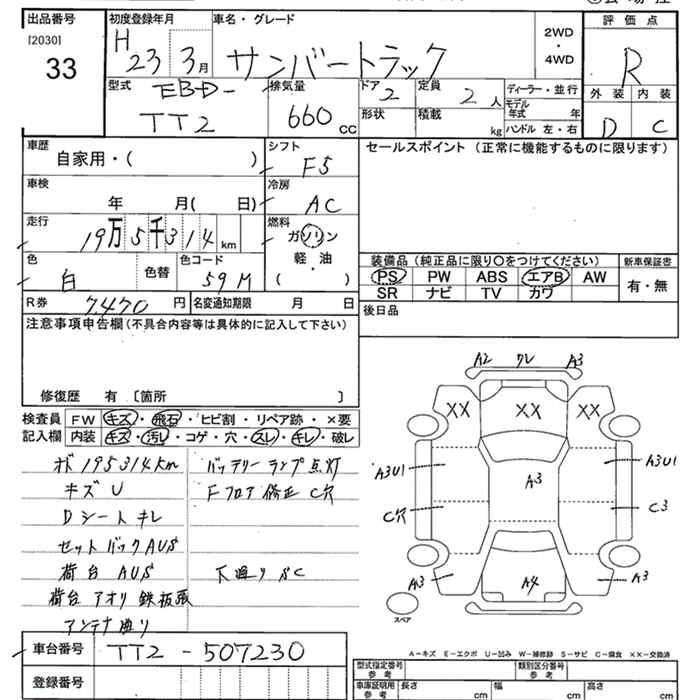 出品番号
[2030]
33
初度登録年月
H 23 3月
車名・グレード
サンバートラック
2WD
・
4WD
評価点
R
外装 内装
D C
型式
EBD-
TT2
排気量
660 CC
ドア 2
定員 2 人
形状
積載 kg
ディーラー・並行
モデル年式 年
ハンドル 左・右
車歴
自家用・( )
シフト
F5
セールスポイント (正常に機能するものに限ります)
車検
年 月( 日)
冷房
AC
走行
19万5千314km
燃料
ガソリン
軽・油
( )
色
白
色替
色コード
59M
装備品 (純正品に限り〇をつけてください)
PS PW ABS エアB AW
SR ナビ TV カワ
新車保証書
有・無
R券 7470円
名変通知期限 月 日
後日品
注意事項申告欄(不具合内容等は具体的に記入して下さい)
修復歴 有 〔箇所 〕
検査員
記入欄
FW キズ・飛石・ヒビ割・リペア跡・×要
内装 キズ・汚レ・コゲ・穴・スレ・キレ・破レ
メ 195314km
キズ U
Dシートキレ
セットバックAUS
荷台 AUS
荷台 アオリ 鉄板張
アンテナ曲り
バッテリーランプ点灯
Fフロア修正 C穴
下廻り SC
A2 ワレ A3
XX XX XX
A3U1 A3 A3U1
C穴 C3
A3 A4 A3
スペア
A-キズ E-エクボ U-凹み W-補修跡 S-サビ C-腐食 XX-交換済
車台番号
TT2-507230
登録番号
型式指定番号
参考
類別区分番号
参考
車庫証明用
参考
長さ cm
幅 cm
高さ cm